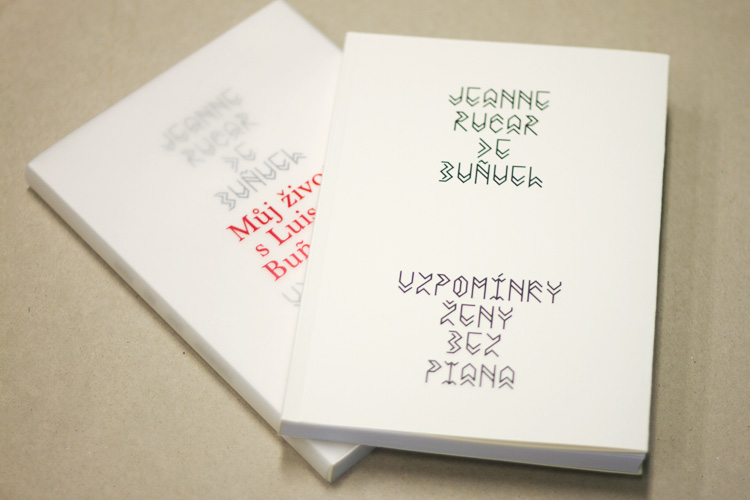 JEANNE
RUCAR
DE
BUÑUEL
Můj živo
s Luis
Buñ
JEANNE
RUCAR
DE
BUÑUEL
VZPOMÍNKY
ŽENY
BEZ
PIANA